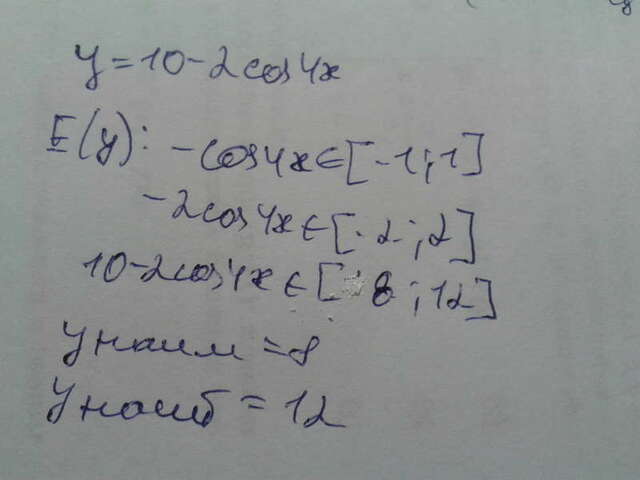 y=10-2cos4x
E(y): -cos4x∈[-1;1]
-2cos4x∈[-2;2]
10-2cos4x∈[8;12]
yнаим=8
yнаиб=12